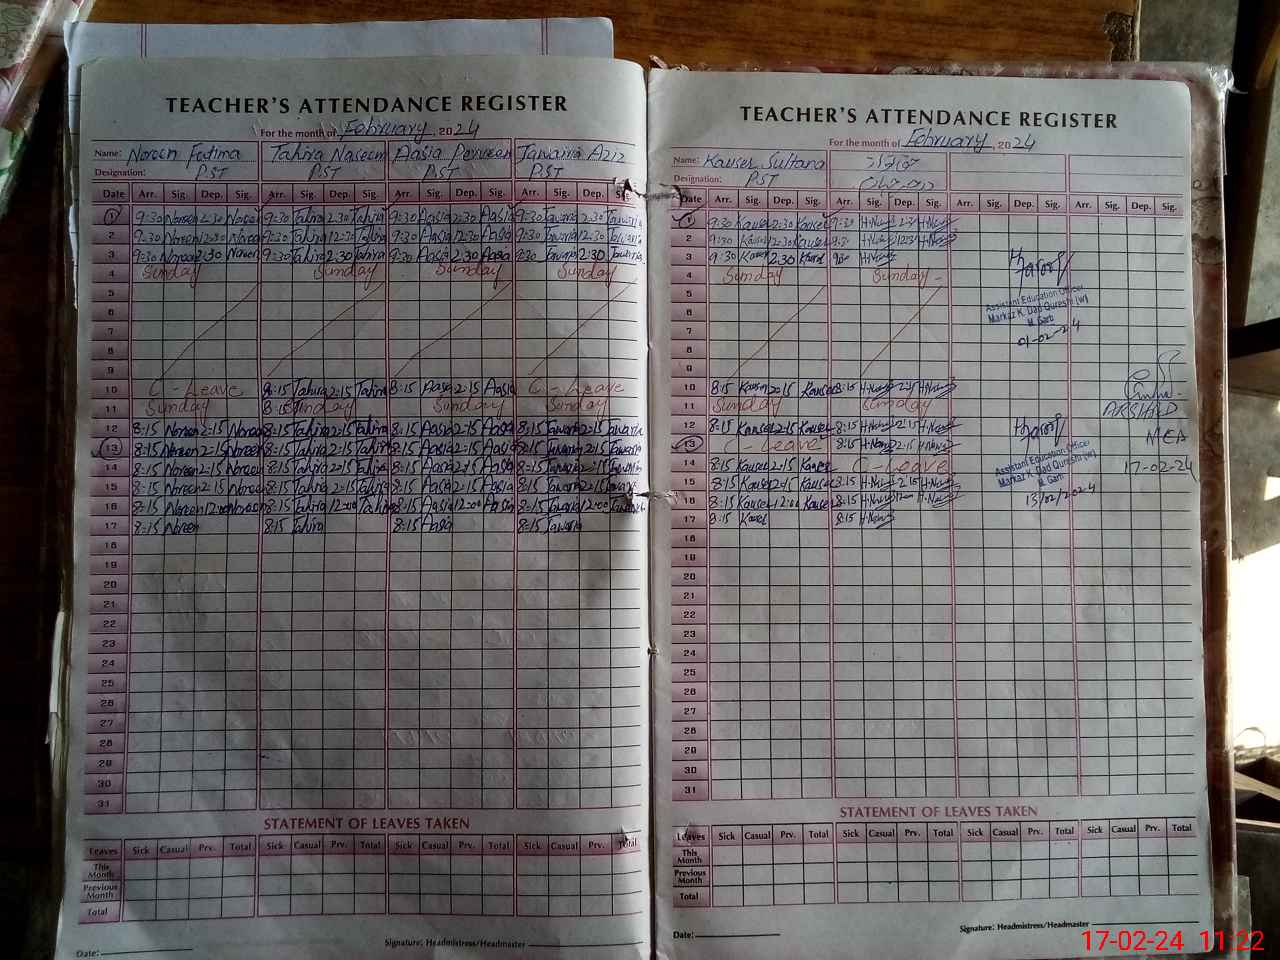 TEACHER'S ATTENDANCE REGISTER
For the month of February, 2024
Name: Noreen Fatima Tahira Naseem Aasia Perveen Tawaria Aziz
Designation: PST PST PST PST
Date Arr. Sig. Dep. Sig. Arr. Sig. Dep. Sig. Arr. Sig. Dep. Sig. Arr. Sig. Dep. Sig.
1 9:30 Noreen 2:30 Noreen 9:30 Tahira 2:30 Tahira 9:30 Aasia 2:30 Aasia 9:30 Tawaria 2:30 Tawaria
2 9:30 Noreen 12:30 Noreen 9:30 Tahira 12:30 Tahira 9:30 Aasia 12:30 Aasia 9:30 Tawaria 12:30 Tawaria
3 9:30 Noreen 2:30 Noreen 9:30 Tahira 2:30 Tahira 9:30 Aasia 2:30 Aasia 9:30 Tawaria 2:30 Tawaria
4 Sunday Sunday Sunday Sunday
5
6
7
8
9
10 C-Leave 8:15 Tahira 2:15 Tahira 8:15 Aasia 2:15 Aasia C-Leave
11 Sunday 8:15 Sunday Sunday Sunday
12 8:15 Noreen 2:15 Noreen 8:15 Tahira 2:15 Tahira 8:15 Aasia 2:15 Aasia 8:15 Tawaria 2:15 Tawaria
13 8:15 Noreen 2:15 Noreen 8:15 Tahira 2:15 Tahira 8:15 Aasia 2:15 Aasia 8:15 Tawaria 2:15 Tawaria
14 8:15 Noreen 2:15 Noreen 8:15 Tahira 2:15 Tahira 8:15 Aasia 2:15 Aasia 8:15 Tawaria 2:15 Tawaria
15 8:15 Noreen 2:15 Noreen 8:15 Tahira 2:15 Tahira 8:15 Aasia 2:15 Aasia 8:15 Tawaria 2:15 Tawaria
16 8:15 Noreen 12:00 Noreen 8:15 Tahira 12:00 Tahira 8:15 Aasia 12:00 Aasia 8:15 Tawaria 12:00 Tawaria
17 8:15 Noreen 8:15 Tahira 8:15 Aasia 8:15 Tawaria
18
19
20
21
22
23
24
25
26
27
28
29
30
31
STATEMENT OF LEAVES TAKEN
Leaves Sick Casual Prv. Total Sick Casual Prv. Total Sick Casual Prv. Total Sick Casual Prv. Total
This Month
Previous Month
Total
Date:
Signature: Headmistress/Headmaster
TEACHER'S ATTENDANCE REGISTER
For the month of February, 2024
Name: Kauser Sultana
Designation: PST
Date Arr. Sig. Dep. Sig. Arr. Sig. Dep. Sig. Arr. Sig. Dep. Sig. Arr. Sig. Dep. Sig.
1 9:30 Kauser 2:30 Kauser 9:30
2 9:30 Kauser 12:30 Kauser 9:30 12:30
3 9:30 Kauser 2:30 Kauser
4 Sunday Sunday
5
6
7
8
9
10 8:15 Kauser 2:15 Kauser 8:15 2:15
11 Sunday Sunday
12 8:15 Kauser 2:15 Kauser 8:15 2:15
13 C-Leave 8:15 2:15
14 8:15 Kauser 2:15 Kauser C-Leave
15 8:15 Kauser 2:15 Kauser 8:15 2:15
16 8:15 Kauser 12:00 Kauser 8:15
17 8:15 Kauser 8:15
18
19
20
21
22
23
24
25
26
27
28
29
30
31
Assistant Education Officer
Markaz K. Dad Qureshi (w)
M. Garh
01-02-24
Assistant Education Officer
Markaz K. Dad Qureshi (w)
M. Garh
13/02/2024
ARSHAD
MEA
17-02-24
STATEMENT OF LEAVES TAKEN
Leaves Sick Casual Prv. Total Sick Casual Prv. Total Sick Casual Prv. Total Sick Casual Prv. Total
This Month
Previous Month
Total
Date:
Signature: Headmistress/Headmaster
17-02-24 11:22